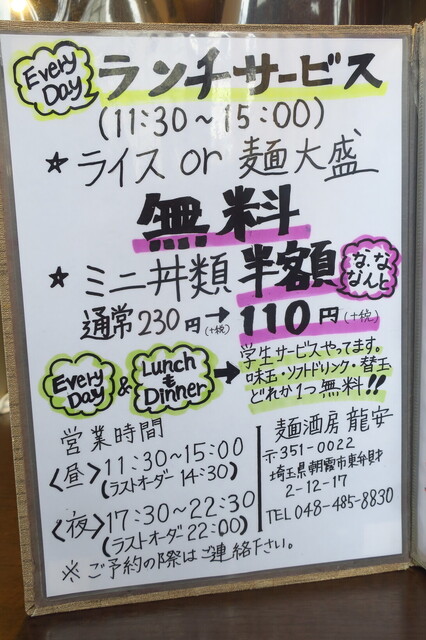 Every Day ランチサービス
(11:30～15:00)
★ ライス or 麺大盛
無料
★ ミニ丼類 半額 な、な なんと
通常230円(+税)→110円(+税)
Every Day & Lunch も Dinner → 学生サービスやってます。
味玉・ソフトドリンク・替玉
どれか1つ無料!!
営業時間
〈昼〉11:30～15:00
(ラストオーダー 14:30)
〈夜〉17:30～22:30
(ラストオーダー 22:00)
※ ご予約の際はご連絡下さい。
麺酒房 龍安
〒351-0022
埼玉県朝霞市東弁財
2-12-17
TEL 048-485-8830